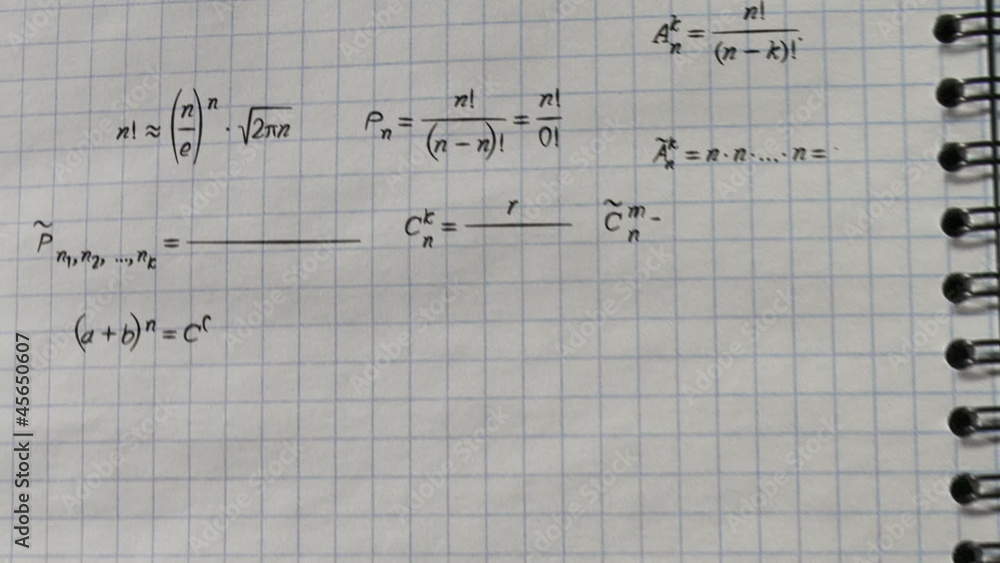 A_n^k = n!/(n − k)!
n! ≈ (n/e)^n · √2πn
P_n = n!/(n − n)! = n!/0!
Ã_n^k = n · n · ... · n =
P̃_{n1, n2, ..., nk} =
C_n^k =
C̃_n^m -
(a + b)^n = C
Adobe Stock | #45650607